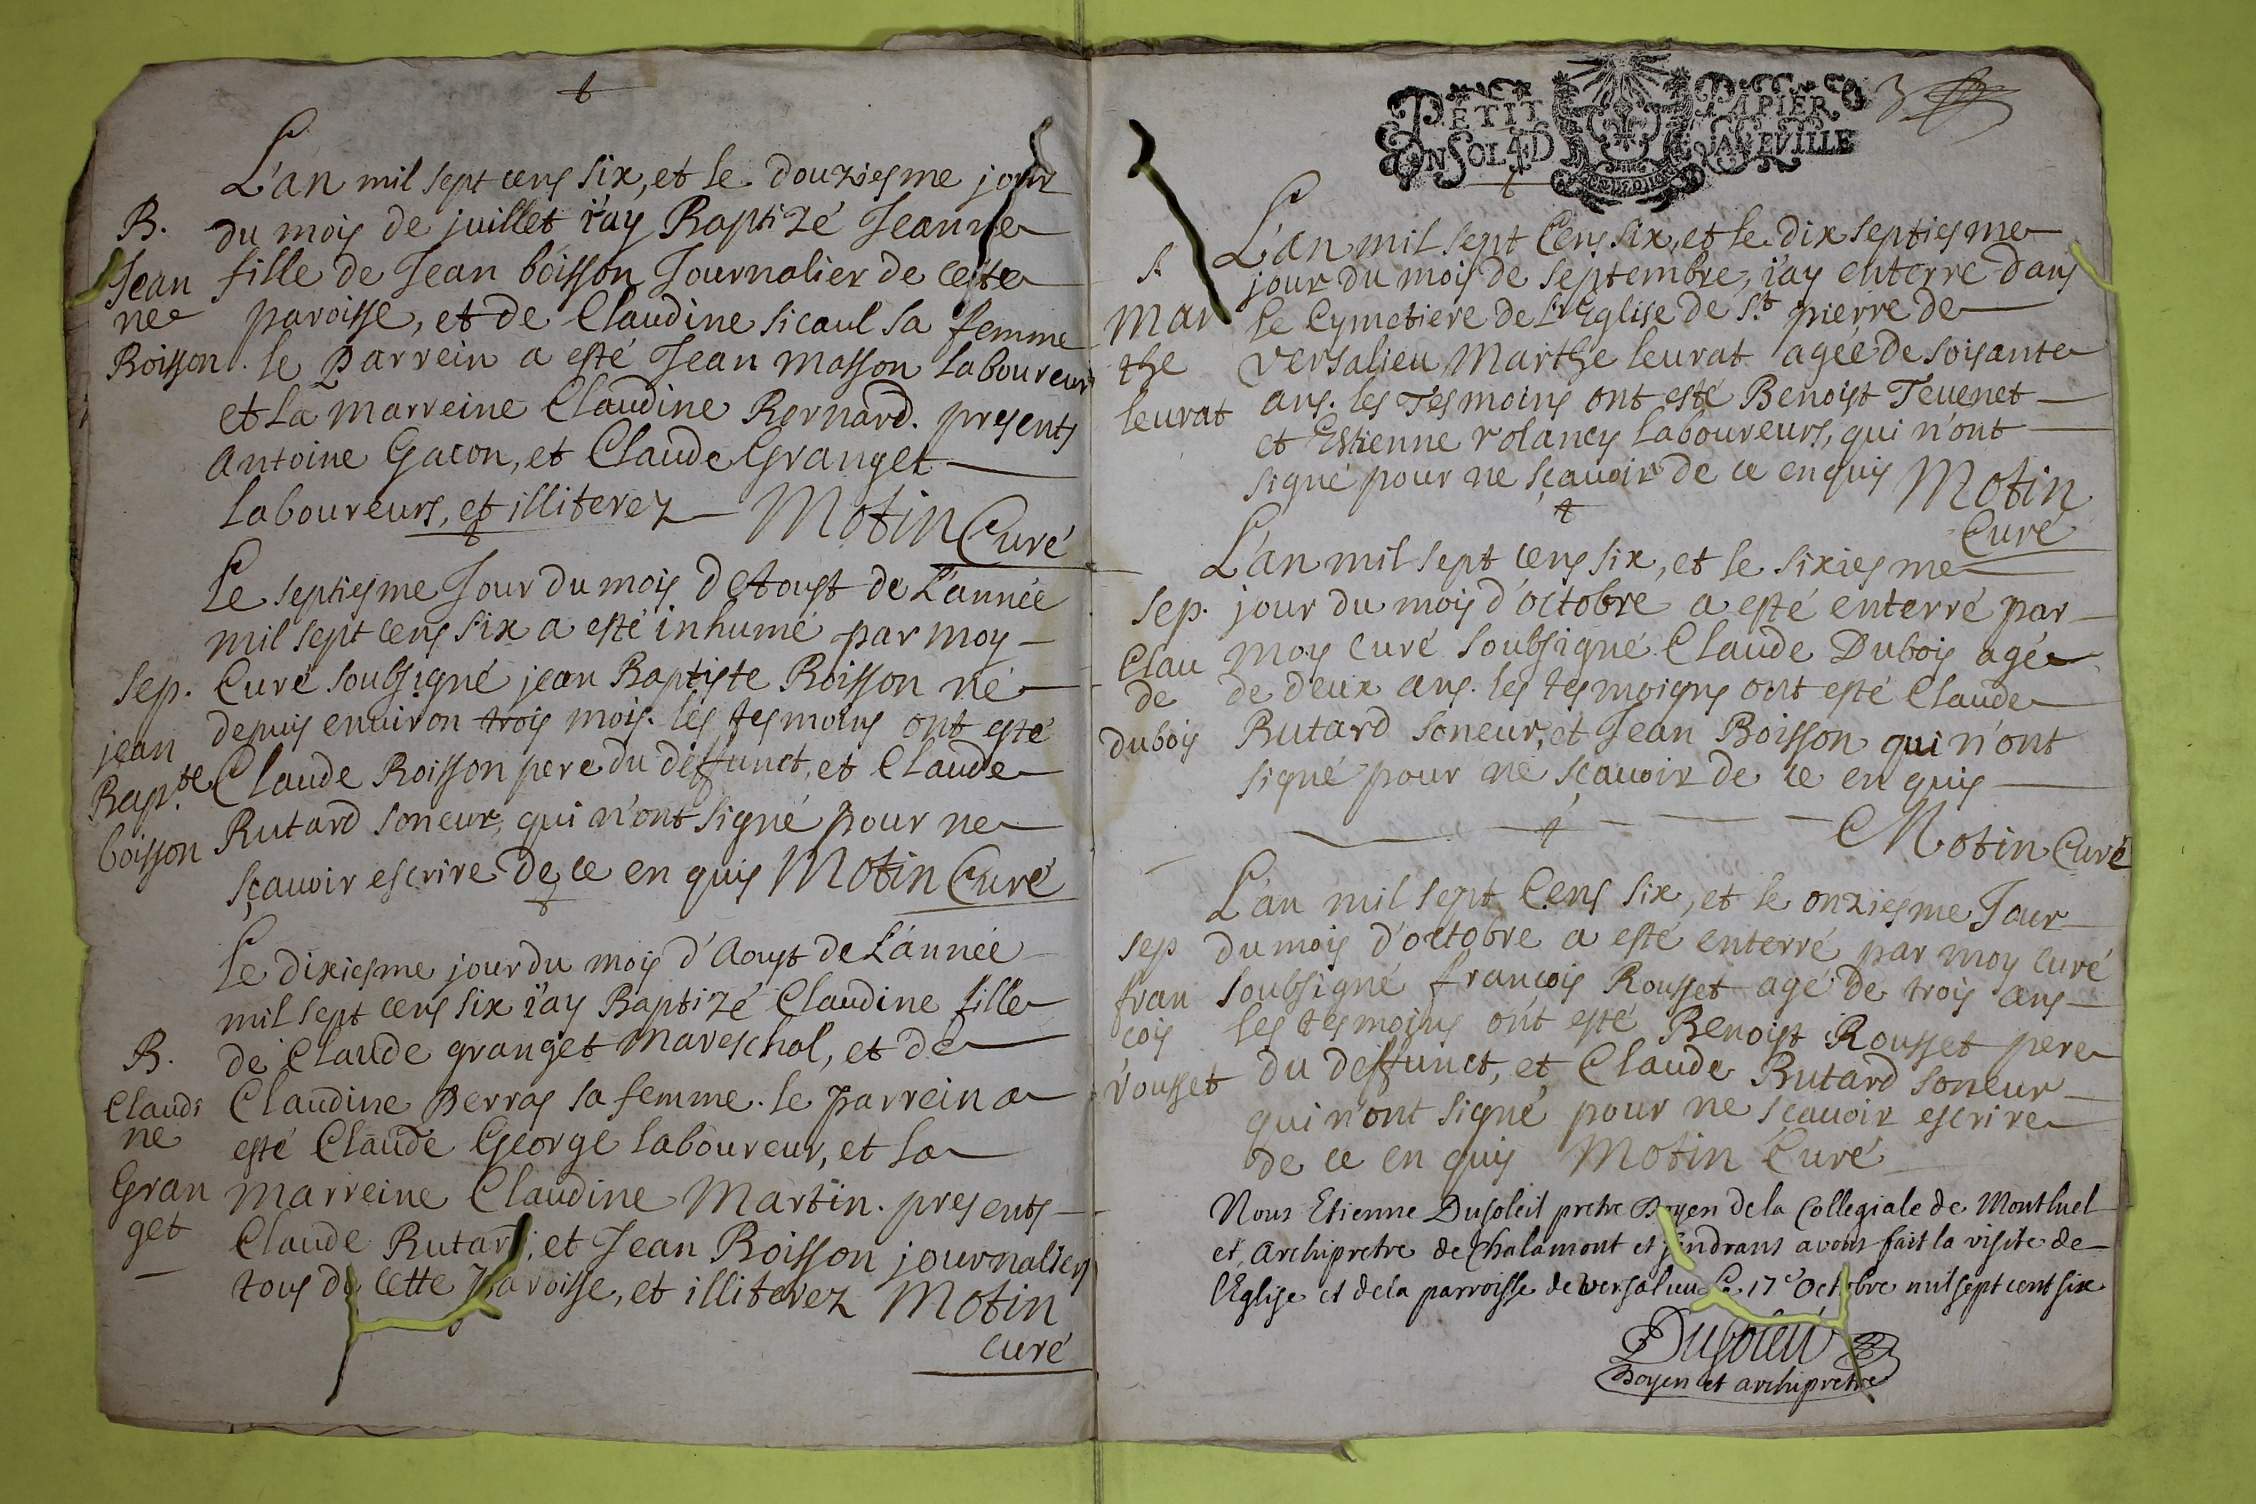 L'an mil sept cens six, et le douziesme jour
B. du mois de juillet i'ay Baptizé Jeanne
Jean fille de Jean boisson Journalier de ceste
ne paroisse, et de Claudine sicaul sa femme
Boisson. le Parrein a esté Jean masson laboureur
et la marreine Claudine Bernard. presents
Antoine Gacon, et Claude Granget
laboureurs, et illiterez Motin Curé
Le septiesme Jour du mois d'Aoust de l'année
mil sept cens six a esté inhumé par moy
Sep. Curé soubsigné jean Baptiste Boisson né
jean depuis enuiron trois mois. les tesmoins ont esté
Bapte. Claude Boisson pere du deffunct, et Claude
boisson Rutard soneur, qui n'ont signé pour ne
sçauoir escrire de ce enquis Motin Curé
Le dixiesme jour du mois d'Aoust de L'année
mil sept cens six i'ay Baptizé Claudine fille
B. de Claude granget mareschal, et de
Claudi Claudine Perras sa femme. le parrein a
ne esté Claude George laboureur, et la
Gran marreine Claudine Martin. presents
get Claude Rutard, et Jean Boisson journaliers
tous de cette Paroisse, et illiterez Motin
curé
PETIT PAPIER 3
UN SOL 4 D LA FEVILLE
L'an mil sept Cens six, et le dix septiesme
S. jour du mois de Septembre, i'ay enterré dans
Mar le Cymetiere de l'Eglise de St. pierre de
the versalieu Marthe leurat agée de soisante
leurat ans. les Tesmoins ont esté Benoist Teuenet
et Estienne rolancy laboureurs, qui n'ont
signé pour ne sçauoir de ce enquis Motin
Curé
L'an mil sept cens six, et le sixiesme
Sep. jour du mois d'octobre a esté enterré par
Clau moy curé soubsigné Claude Dubois agé
de de deux ans. les tesmoigns ont esté Claude
dubois Rutard soneur, et Jean Boisson qui n'ont
signé pour ne sçauoir de ce enquis
Motin Curé
L'an mil sept Cens six, et le onziesme Jour
sep du mois d'octobre a esté enterré par moy curé
fran soubsigné françois Rousset agé de trois ans
cois les tesmoins ont esté Benoist Rousset pere
rousset du deffunct, et Claude Rutard soneur
qui n'ont signé pour ne sçauoir escrire
de ce enquis Motin Curé
Nous Etienne Dusoleil pretre Doyen de la Collegiale de Montluel
et Archipretre de Chalamont et sandrans avons fait la visite de
l'Eglise et de la parroisse de versalieu le 17e Octobre mil sept cent six
Dusoleil
Doyen et archipretre